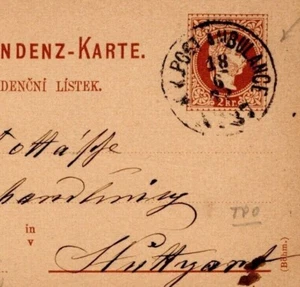 NDENZ-KARTE.
DENČNÍ LÍSTEK.
K.K. POST-AMBULANCE
18
6
2 kr.
handlung
TPO
in
v
Stuttgart
(Böhm.)